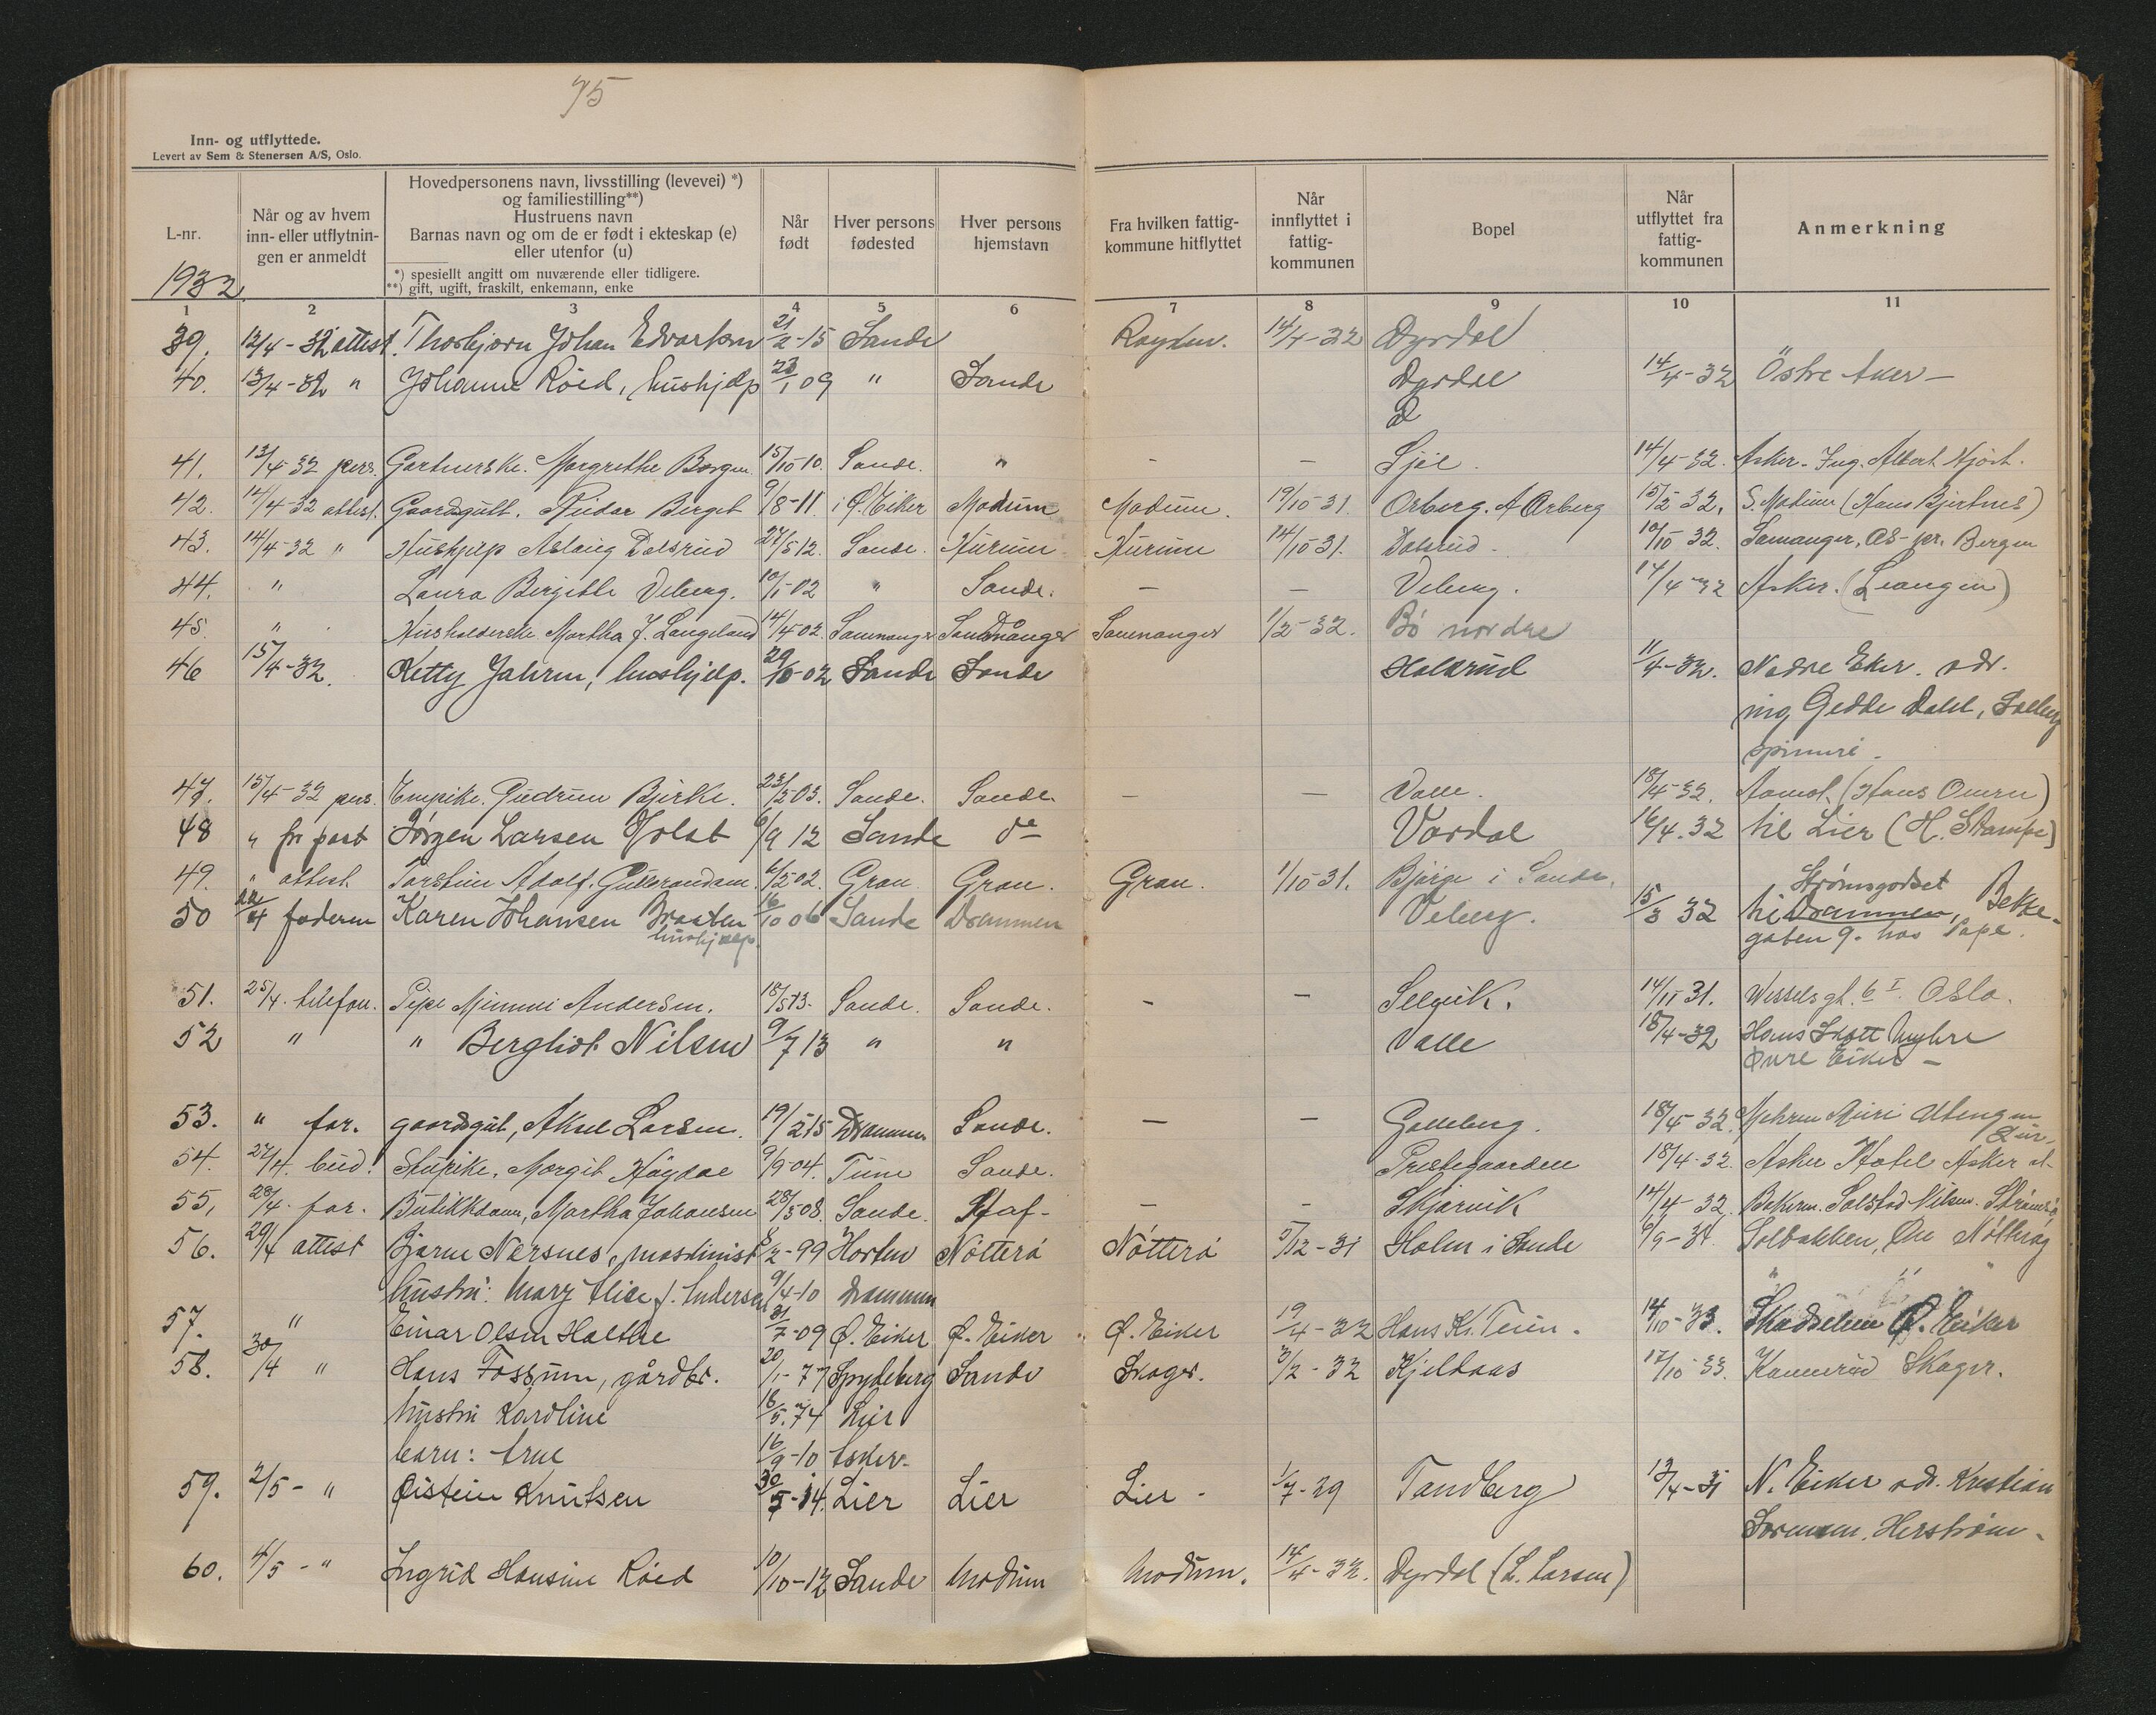 75
Inn- og utflyttede.
Levert av Sem & Stenersen A/S, Oslo.
L-nr. Når og av hvem inn- eller utflytnin- gen er anmeldt Hovedpersonens navn, livsstilling (levevei) *) og familiestilling**) Hustruens navn Barnas navn og om de er født i ekteskap (e) eller utenfor (u) *) spesiellt angitt om nuværende eller tidligere. **) gift, ugift, fraskilt, enkemann, enke Når født Hver persons fødested Hver persons hjemstavn Fra hvilken fattig- kommune hitflyttet Når innflyttet i fattig- kommunen Bopel Når utflyttet fra fattig- kommunen Anmerkning
1932
1 2 3 4 5 6 7 8 9 10 11
39. 12/4-32 attest. Thorbjørn Johan Edvartsen 21/2-15 Sande Røyken. 14/4-32 Dyrdal
40. 13/4-32 " Johanne Röed, hushjelp 23/1 09 " Sande Dyrdal 14/4-32 Östre Aker -
41. 13/4-32 pers. Gartnerske. Margrethe Borgen. 15/10-10. Sande. " - - Sjøl. 14/4-32. Asker. Ing. Albert Hjort.
42. 14/4-32 attest. Gaardsgutt. Reidar Berget 9/8-11. i Ø. Eiker Modum Modum. 19/10 31. Orberg. A Orberg 15/2 32. S. Modum (Hans Bjertnes)
43. 14/4-32 " Hushjelp Aslaug Dalsrud 27/5 12. Sande. Hurum Hurum 14/10 31. Dalsrud. 10/10 32. Samanger, Os- pr. Bergen
44. " Laura Bergitte Veberg. 10/1-02 " Sande. - - Veberg. 14/4-32 Asker. (Leangen)
45. " Husholderske Martha J. Langeland 14/4 02. Samnanger Samnanger Samnanger 1/2-32. Bö nordre
46 15/4-32. Ketty Jahren, hushjelp. 29/6-02 Sande Sande Halsrud 11/4-32. Nedre Eker. adr.
ing. Gedde Dahl, Solberg
spinneri.
47. 15/4-32 pers. Empike. Gudrun Bjerke. 23/2 03. Sande. Sande. - - Valle. 18/4-32. Aamot. (Hans Omru)
48 " fr post Jörgen Larsen Holst 6/9 12 Sande do Vardal 16/4.32 til Lier (H. Stampe)
49. " attest. Torstein Adolf. 6/2 02. Gran Gran. Gran. 1/10 31. Bjørge i Sande.
Strømsgodset
50 22/4 faderen Karen Johansen Braaten 16/10 06 Sande Drammen Veberg. 15/3 32 til Drammen, Bekke-
hushjelp. gaten 9. hos Pape.
51. 25/4. telefon. Pipe Mimmi Andersen. 18/5 13. Sande. Sande. - - Selvik. 14/11 31. Wessels gt. 6 I. Oslo.
52 " " Bergliot Nilsen 9/7 13 " " Valle 18/4-32 Hans Skött Myhre
Øvre Eiker -
53. " far. gaardsgut, Aksel Larsen. 19/2 15 Drammen Sande. - - Galleberg. 18/4-32.
Lier.
54. 27/4. bud. Stupike. Margit Høydal 9/9-04. Tune Sande. Prestegaarden 18/4-32. Asker Hotel Asker st.
55, 28/4. far. Butikkdame, Martha Johansen 28/5 08. Sande. Staf- - - Skjærvik 14/4-32. Bakerm. Solstad Nilsen. Strømsö
56. 29/4 attest Bjarne Nersnes, maskinist 8/2-99 Horten Nötterö Nötterö 5/12-31 Holm i Sande 6/9-34 Solbakken, Öre Nötteröy
hustru: Mary Elise f. Andersen 9/4-10 Drammen " " "
57. " Einar Olsen Holthe 31/7-09 Ø. Eiker Ø. Eiker Ø. Eiker 19/4-32 Hans Kr. Teien. 14/10-33. Skodselven Ø. Eiker
58. 30/4 " Hans Fossum, gårdbr. 20/1-77 Spydeberg Sande Skoger. 3/2-32 Kjeldaas 17/10 33. Kamerud Skoger.
hustru Karoline 18/5.74 Lier
barn: Arne 16/9-10 Asker.
59. 2/5- " Øistein Knutsen 30/5-14. Lier Lier Lier - 1/7-29 Tandberg 13/4-31 N. Eiker adr. Kristian
Sorensen, Herström.
60. 4/5- " Ingrid Hansine Röed 10/10-12 Sande Modum Modum. 14/4-32. Dyrdal (L. Larsen)